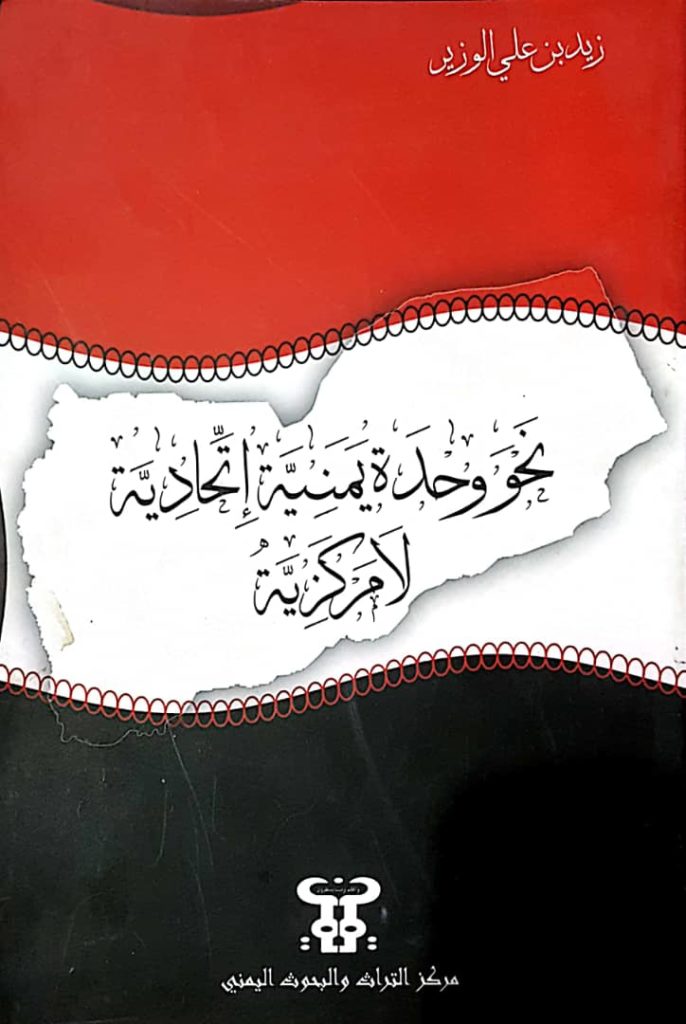 زيد بن علي الوزير
نَحْوَ وَحْدَة يَمَنِيَّة إتِّحَادِيَّة
لَا مَرْكَزِيَّةُ
مركز التراث والبحوث اليمني